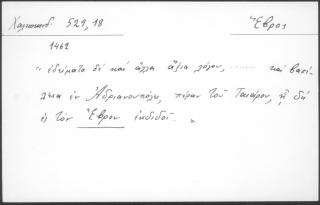 Χαλκοκονδ. 529,18
Ἕβρος
1462
"ἐδείματο δὲ καὶ ἄλλα ἄξια λόγου, ........ καὶ βασί-
λεια ἐν Ἀδριανουπόλει, πέραν τοῦ Ταινάρου, ᾗ δὴ
ἐς τὸν Ἕβρον ἐκδιδοῖ. "